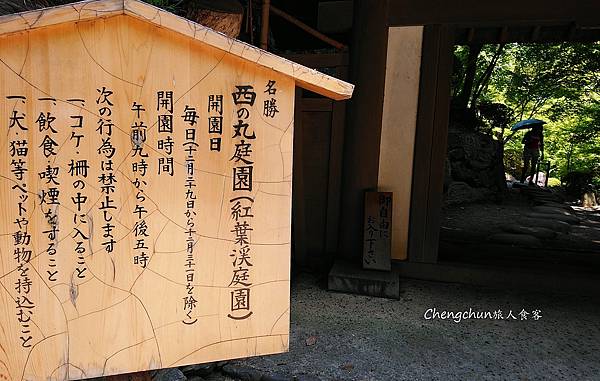 名勝
西の丸庭園(紅葉渓庭園)
開園日
毎日(十二月二十九日から十二月三十一日を除く)
開園時間
午前九時から午後五時
次の行為は禁止します
一、コケ・柵の中に入ること
一、飲食・喫煙をすること
一、犬、猫等ペットや動物を持込むこと
御自由に
お入り下さい
Chengchun旅人食客